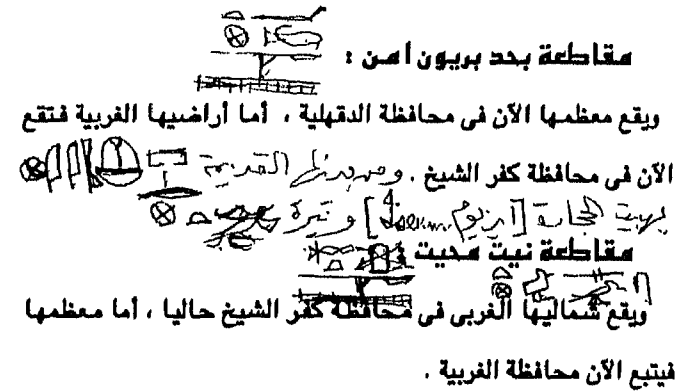 مقاطعة بحد بريون امن :
ويقع معظمها الآن فى محافظة الدقهلية ، أما أراضيها الغربية فتقع
الآن فى محافظة كفر الشيخ . ومن مدنها القديمة
بهبيت الحجارة [
مقاطعة نيت محيت
ويقع شماليها الغربى فى محافظة كفر الشيخ حاليا ، أما معظمها
فيتبع الآن محافظة الغربية .